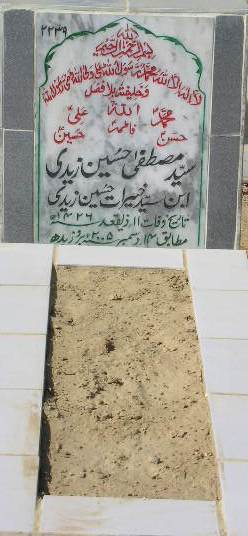 ۲۲۳۹
بسم الله الرحمن الرحیم
لا اله الا الله محمد رسول الله علی ولی الله وصی رسول الله
وخلیفته بلا فصل
محمد الله علی
حسن فاطمه حسین
سید مصطفی حسین زیدی
ابن سید خیرات حسین زیدی
تاریخ وفات ۱۱ ذیقعد ۱۴۲۶ھ
مطابق ۱۴ دسمبر ۲۰۰۵ء بروز بدھ